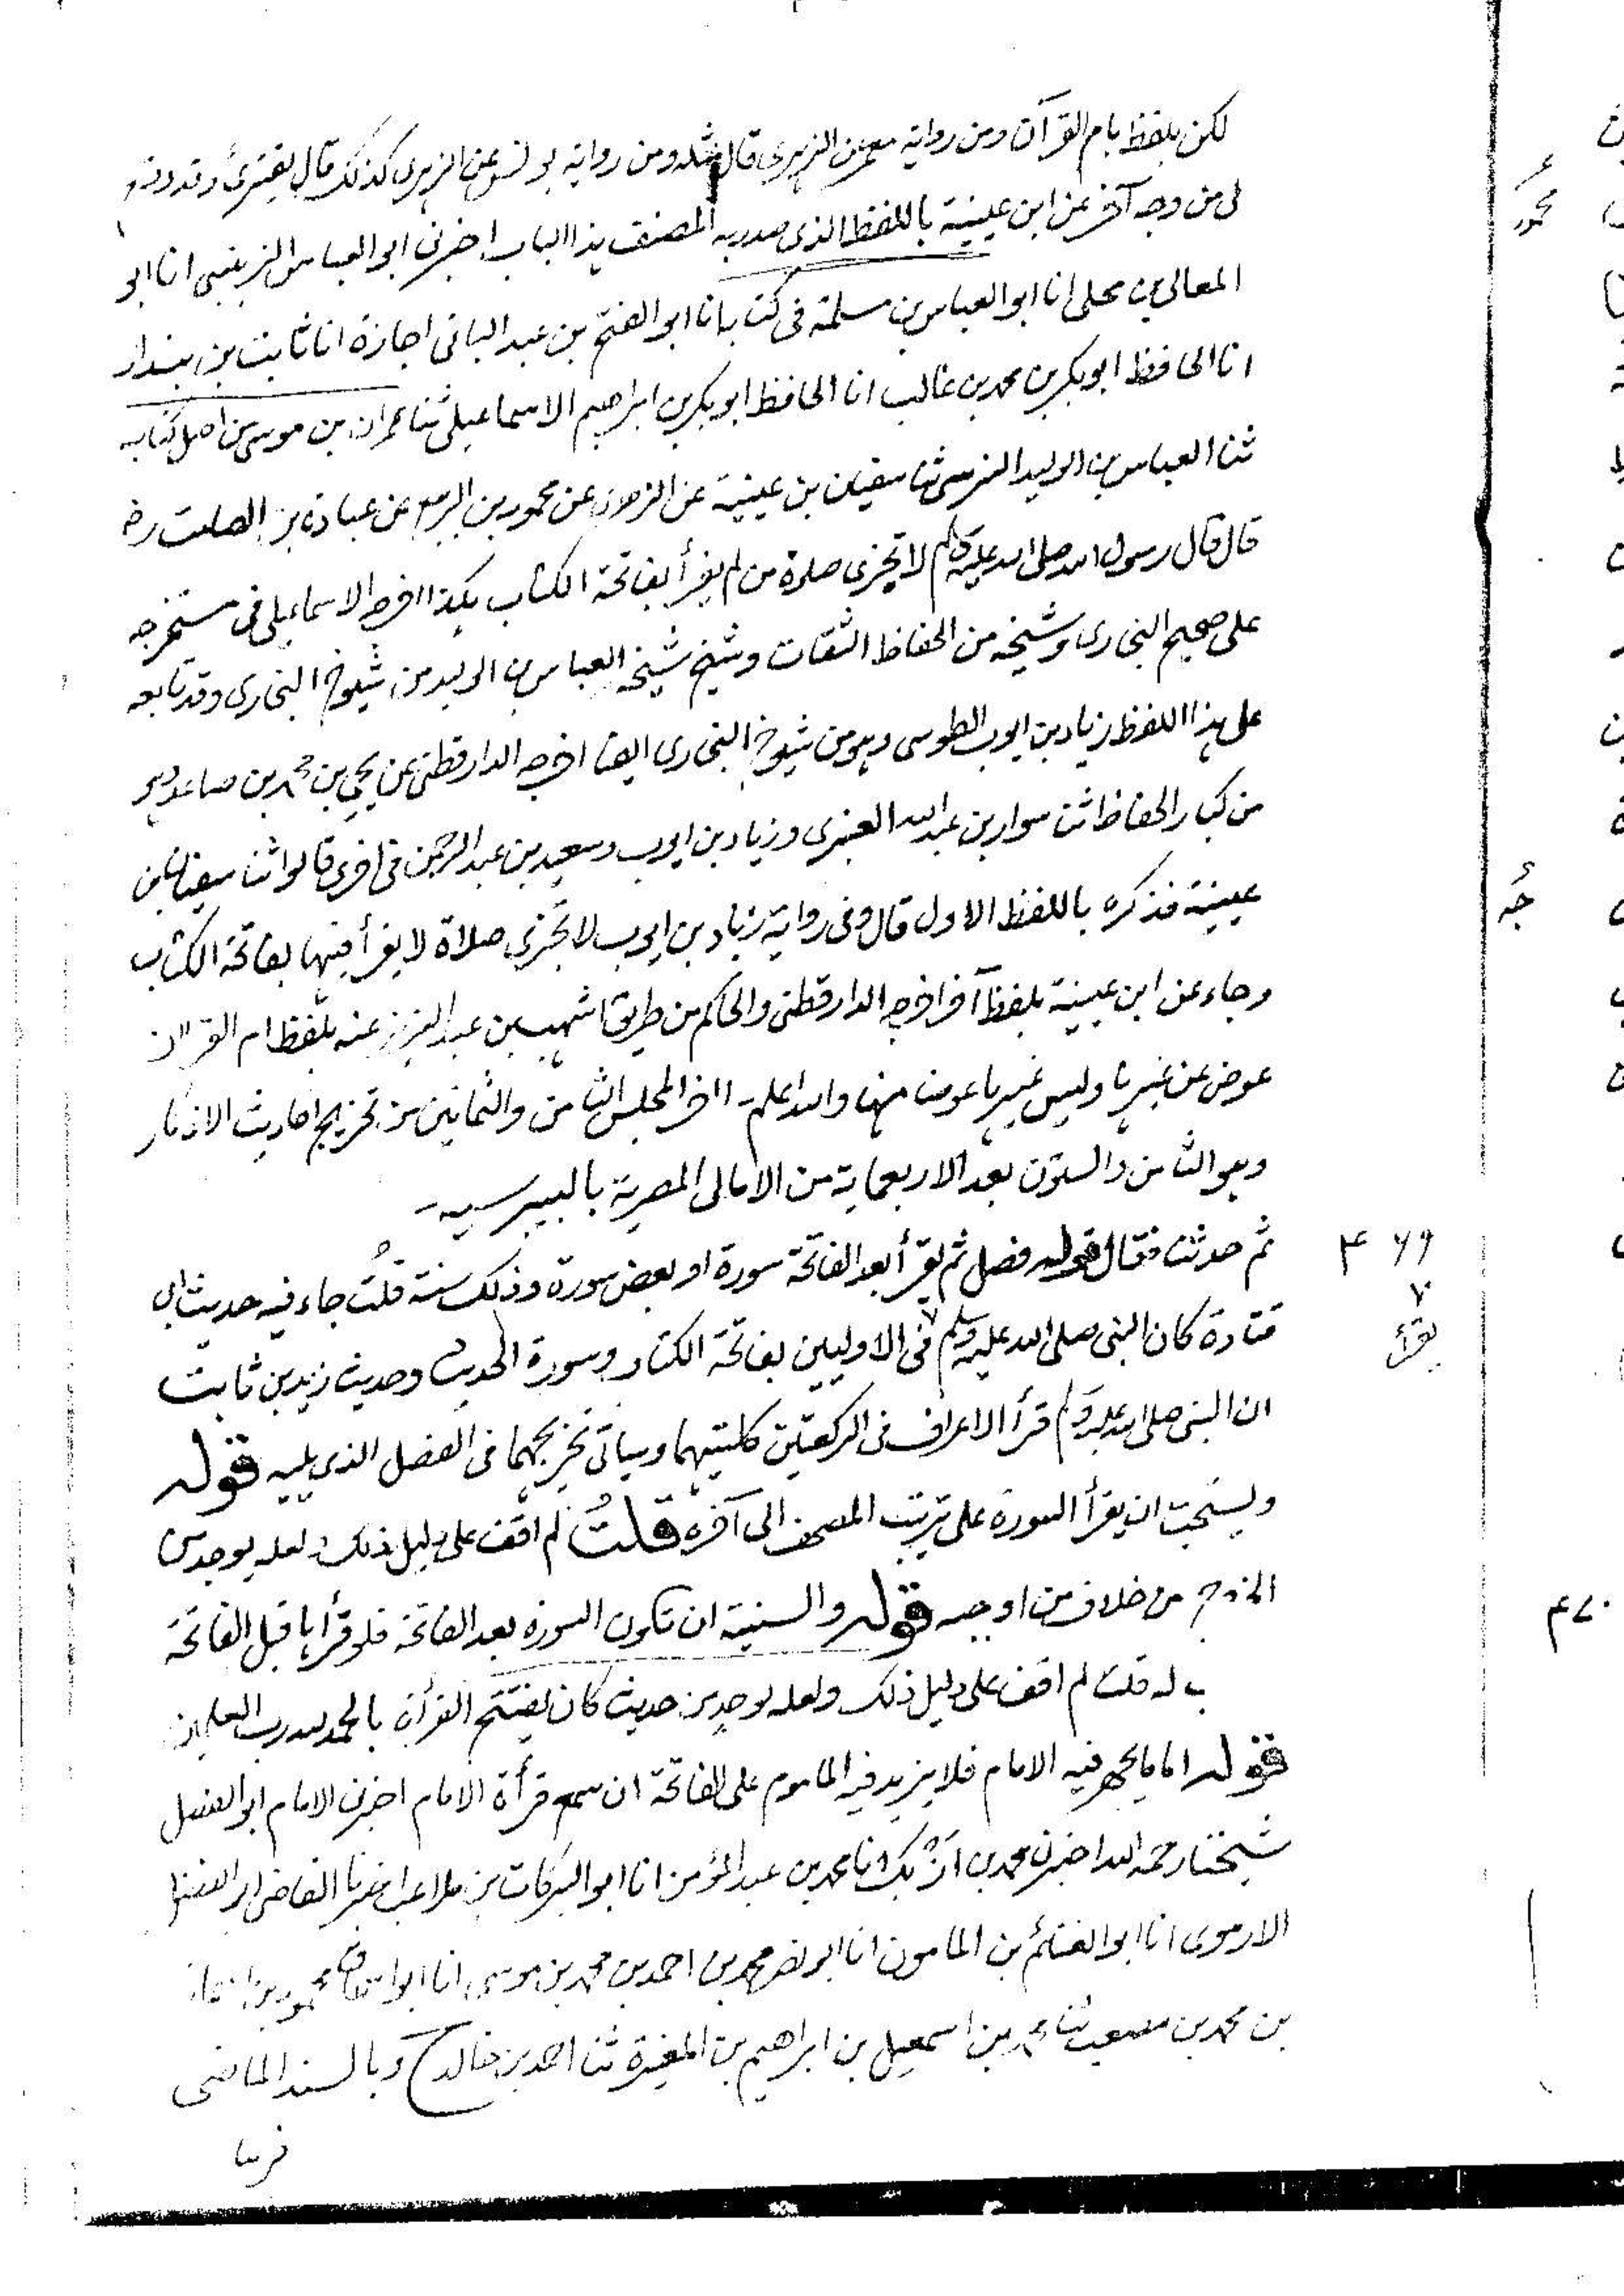 لكن بلفظ بام القرآن ومن رواية معمر عن الزهري قال مثله ومن رواية يونس عن الزهري كذلك قال يقترئ وقد وقع
لى من وجه آخر عن ابن عيينة باللفظ الذى صدر به المصنف هذا الباب اخبرنى ابو العباس الزينبى انا ابو
المعالى بن محلى انا ابو العباس بن مسلمة فى كتابه انا ابو الفتح بن عبد الباقى اجازة انا ثابت بن بندار
انا الحافظ ابو بكر بن محمد بن غالب انا الحافظ ابو بكر بن ابراهيم الاسماعيلى ثنا عمران بن موسى من اصل كتابه
ثنا العباس بن الوليد النرسى ثنا سفيان بن عيينة عن الزهرى عن محمود بن الربيع عن عبادة بن الصامت رض
قال قال رسول الله صلى الله عليه وسلم لا تجزى صلوة من لم يقرأ بفاتحة الكتاب هكذا اخرجه الاسماعيلى فى مستخرجه
على صحيح البخارى وشيخه من الحفاظ الثقات وشيخ شيخه العباس بن الوليد من شيوخ البخارى وقد تابعه
على هذا اللفظ زياد بن ايوب الطوسى وهو من شيوخ البخارى ايضا اخرجه الدارقطنى عن يحيى بن محمد بن صاعد وهو
من كبار الحفاظ ثنا سوار بن عبد الله العنبرى وزياد بن ايوب وسعيد بن عبد الرحمن فى اخرى قالوا ثنا سفيان بن
عيينة فذكره باللفظ الاول قال وفى رواية زياد بن ايوب لا تجزى صلاة لا يقرأ فيها بفاتحة الكتاب
وجاء عن ابن عيينة بلفظ آخر اخرجه الدارقطنى والحاكم من طريق اشهب بن عبد العزيز عنه بلفظ ام القرآن
عوض عن غيرها وليس غيرها عوضا منها والله اعلم - اخر المجلس الثامن والثمانين من تخريج احاديث الاذكار
وهو الثامن والستون بعد الاربعماية من الامالى المصرية بالبيبرسيه -
ثم حدثنا فقال قوله فصل ثم يقرأ بعد الفاتحة سورة او بعض سورة وذلك سنة قلت جاء فيه حديث ابى
٤٦٩
قتادة كان النبى صلى الله عليه وسلم فى الاوليين بفاتحة الكتاب وسورة الحديث وحديث زيد بن ثابت
٧ يقرأ
ان النبى صلى الله عليه وسلم قرأ الاعراف فى الركعتين كلتيهما وسياتى تخريجهما فى الفصل الذى يليه قوله
ويستحب ان يقرأ السورة على ترتيب المصحف الى آخره قلت لم اقف على دليل ذلك ولعله يوجد من
الخروج من خلاف من اوجبه قوله والسنة ان تكون السورة بعد الفاتحة فلو قرأها قبل الفاتحة
٤٧٠
قلت لم اقف على دليل ذلك ولعله يوجد من حديث كان يفتتح القرأة بالحمد لله رب العلمين
قوله اما ما يجهر فيه الامام فلا يزيد فيه الماموم على الفاتحة ان سمع قرأة الامام اخبرنى الامام ابو الفضل
شيخنا رحمه الله اخبرنى محمد بن ازبك انا محمد بن عبد المؤمن انا ابو البركات بن ملاعب اخبرنا القاضى ابو الفضل
الارموى انا ابو الغنائم بن المامون انا ابو نصر محمد بن احمد بن محمد بن موسى انا ابو اسحاق محمود بن اسحاق
بن محمد بن مصعب ثنا محمد بن اسمعيل بن ابراهيم بن المغيرة ثنا احمد بن خالد ح وبالسند الماضى